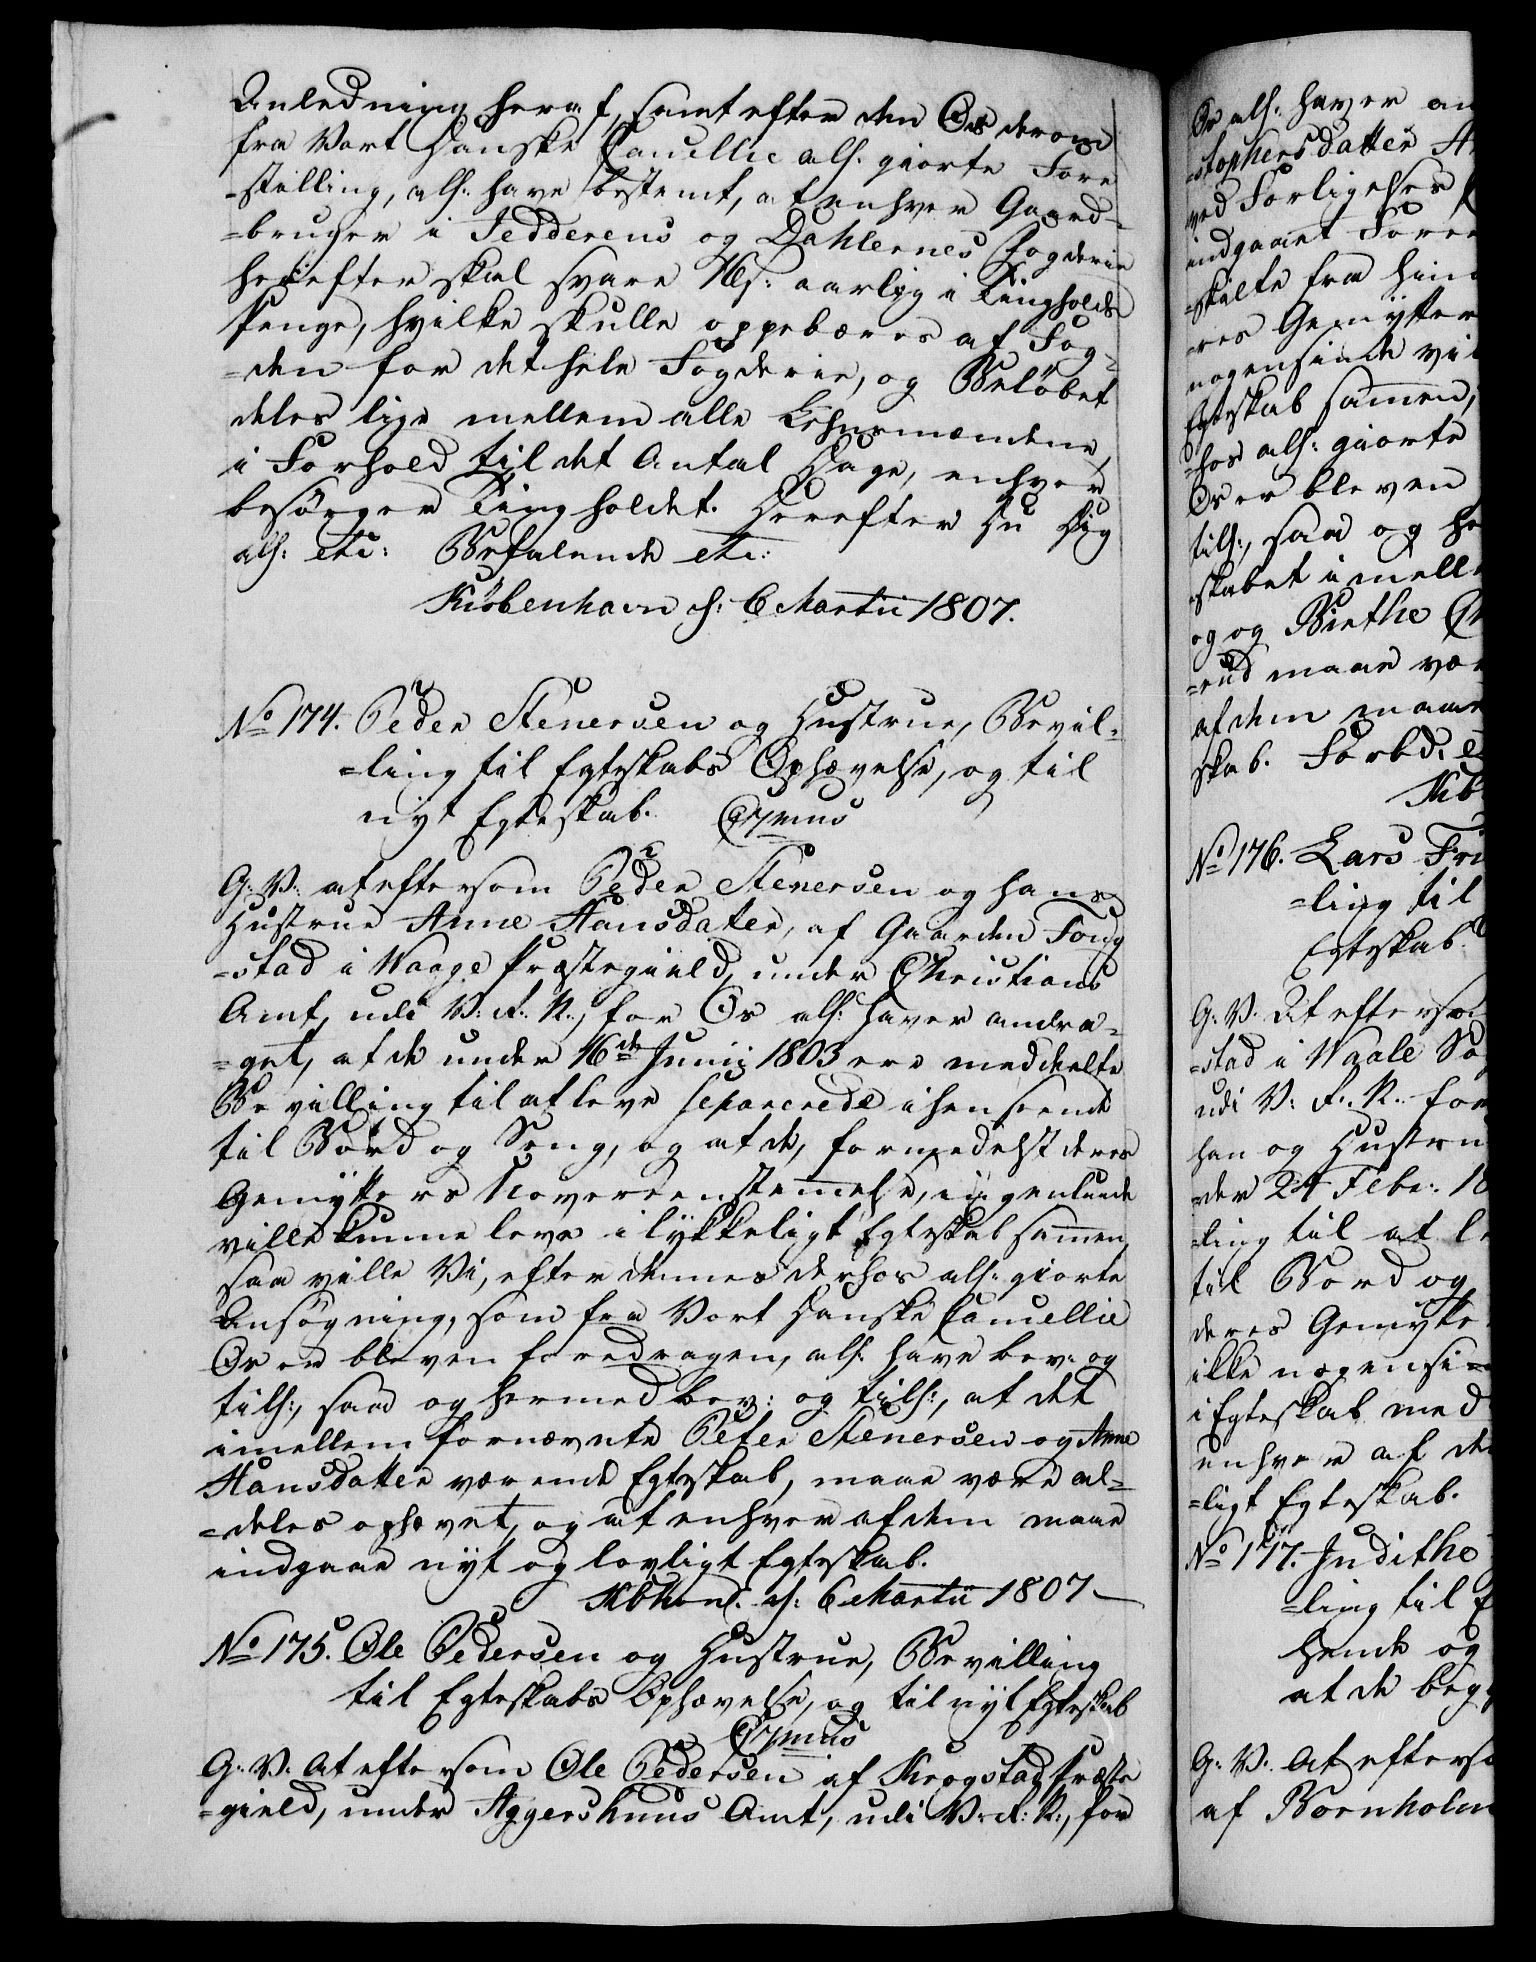 Anledning heraf, samt efter den Os derom
fra Vort Danske Cancellie als: giorte Fore
-stilling, als: have bestemt, at enhver Gaard-
=bruger i Jedderens og Dahlernes Fogderie
herefter skal svare 16 s: aarlig i Tingholds
Penge, hvilke skulle oppebæres af Fog-
=den for det hele Fogderie, og Beløbet
deles lige mellem alle Lehnsmændene,
i Forhold til det Antal Dage, enhver
besørger Tingholdet. Herefter Du Dig
als: etc: Befalende etc:
Kiøbenhavn d: 6 Martii 1807.
No 174. Peder Stenersen og Hustrue, Bevil-
=ling til Egteskabs Ophævelse, og til
nyt Egteskab.
G: V: at eftersom Peder Stenersen og hans
Hustrue Anne Hansdater, af Gaarden Tong
-stad i Vaage Præstegield, under Christians
Amt, udi V: R: N:, for Os als: haver andra-
=get, at de under 16de Junii 1803 ere meddeelte
Bevilling til at leve separerede i henseende
til Bord og Seng, og at de, formedelst deres
Gemytters Uovereenstemmelse, ingenlunde
ville kunne leve i lykkeligt Egteskab sammen,
saa ville Vi, efter dennes derhos als: giorte
Ansøgning, som fra Vort Danske Cancellie
Os er bleven foredragen, als: have bev: og
tills:, saa og hermed bev: og tills:, at det
imellem fornævnte Peter Stenersen og Anne
Hansdatter værende Egteskab, maae være al-
=deles ophævet, og at enhver af dem maae
indgaae nyt og lovligt Egteskab.
Kbhavn d: 6 Martii 1807
No 175. Ole Pedersen og Hustrue, Bevilling
til Egteskabs Ophævelse, og til nyt Egteskab
G: V: At eftersom Ole Pedersen af Krogstad Præste
=gield, under Aggershuus Amt, udi V: R: N:, for
Os als: haver an
=stophersdatter
ved Forligelses
indgaaet Foree
=skilte fra hina
=res Gemytter
nogensinde vi
Egteskab sammen,
=hos als: giorte
Os er bleven
tills:, saa og he
skabet imelle
og og Birthe
=rud maae vær
af dem maae
skab. Forbd: e
Kb
No 176. Lars Fri
=ling til
Egteskab.
G: V: At efterso
=stad i Vaale So
udi V: R: N: for
han og Hustru
=der 24 Febr: 18
=ling til at le
til Bord og
deres Gemytte
ikke nogensi=
i Egteskab med
enhver af de
=ligt Egteskab.
No 177. Judithe
=ling til E
hende og
at de begg
G: V: At efterso
af Bornholm